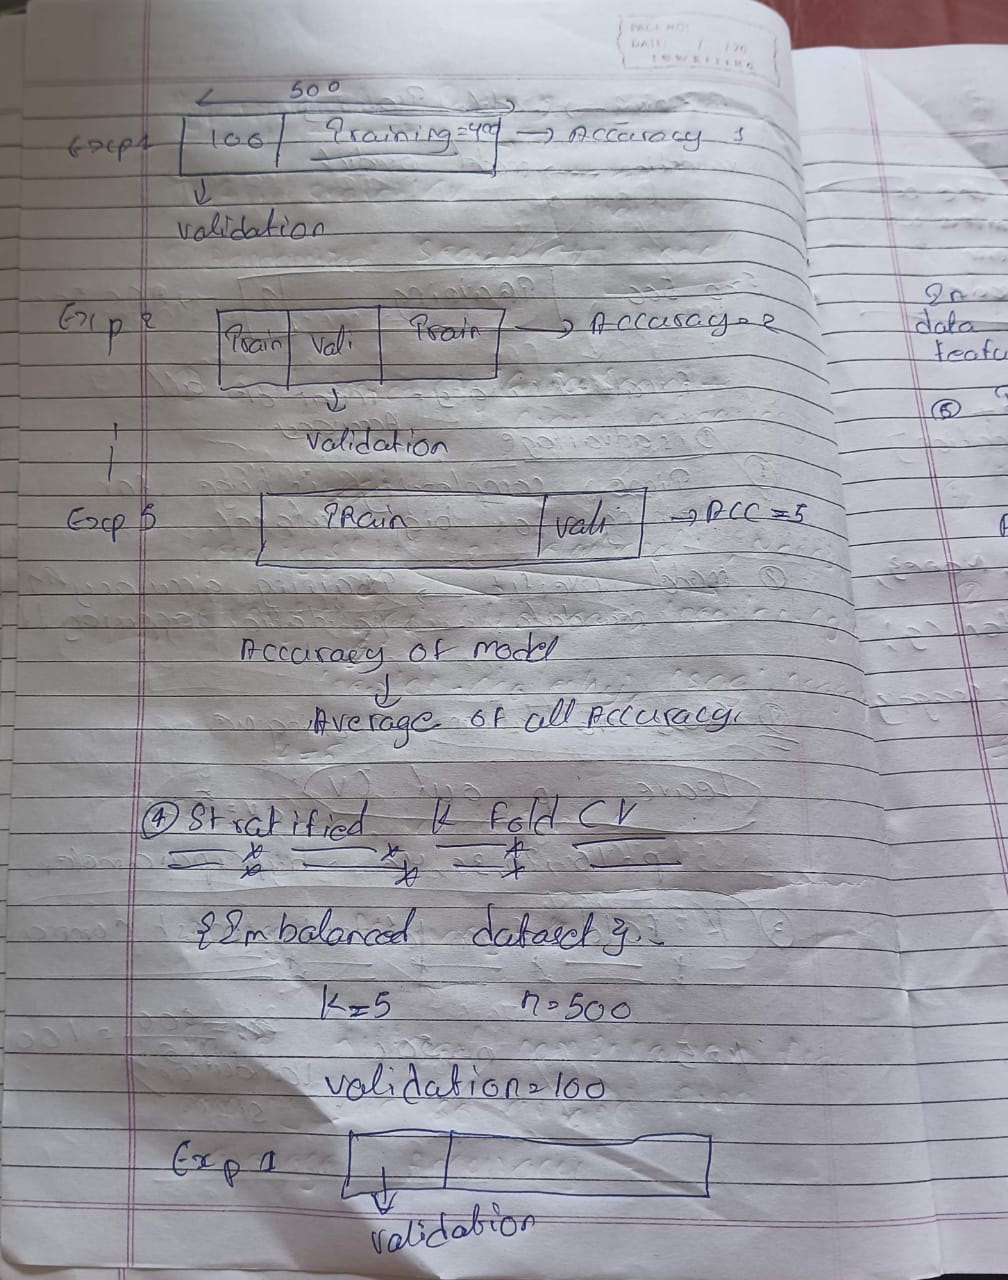 PAGE NO:
DATE: / /20
500
Exp 1 100 Training=400 → Accuracy 1
↓
validation
Exp 2 Train vali Train → Accuracy=2
↓
validation
Exp 5 Train vali → Acc=5
Accuracy of model
↓
Average of all Accuracy.
④ Stratified K Fold CV
{Imbalanced dataset}
k=5 n=500
validation=100
Exp 1
↓
validation
In
data
⑤